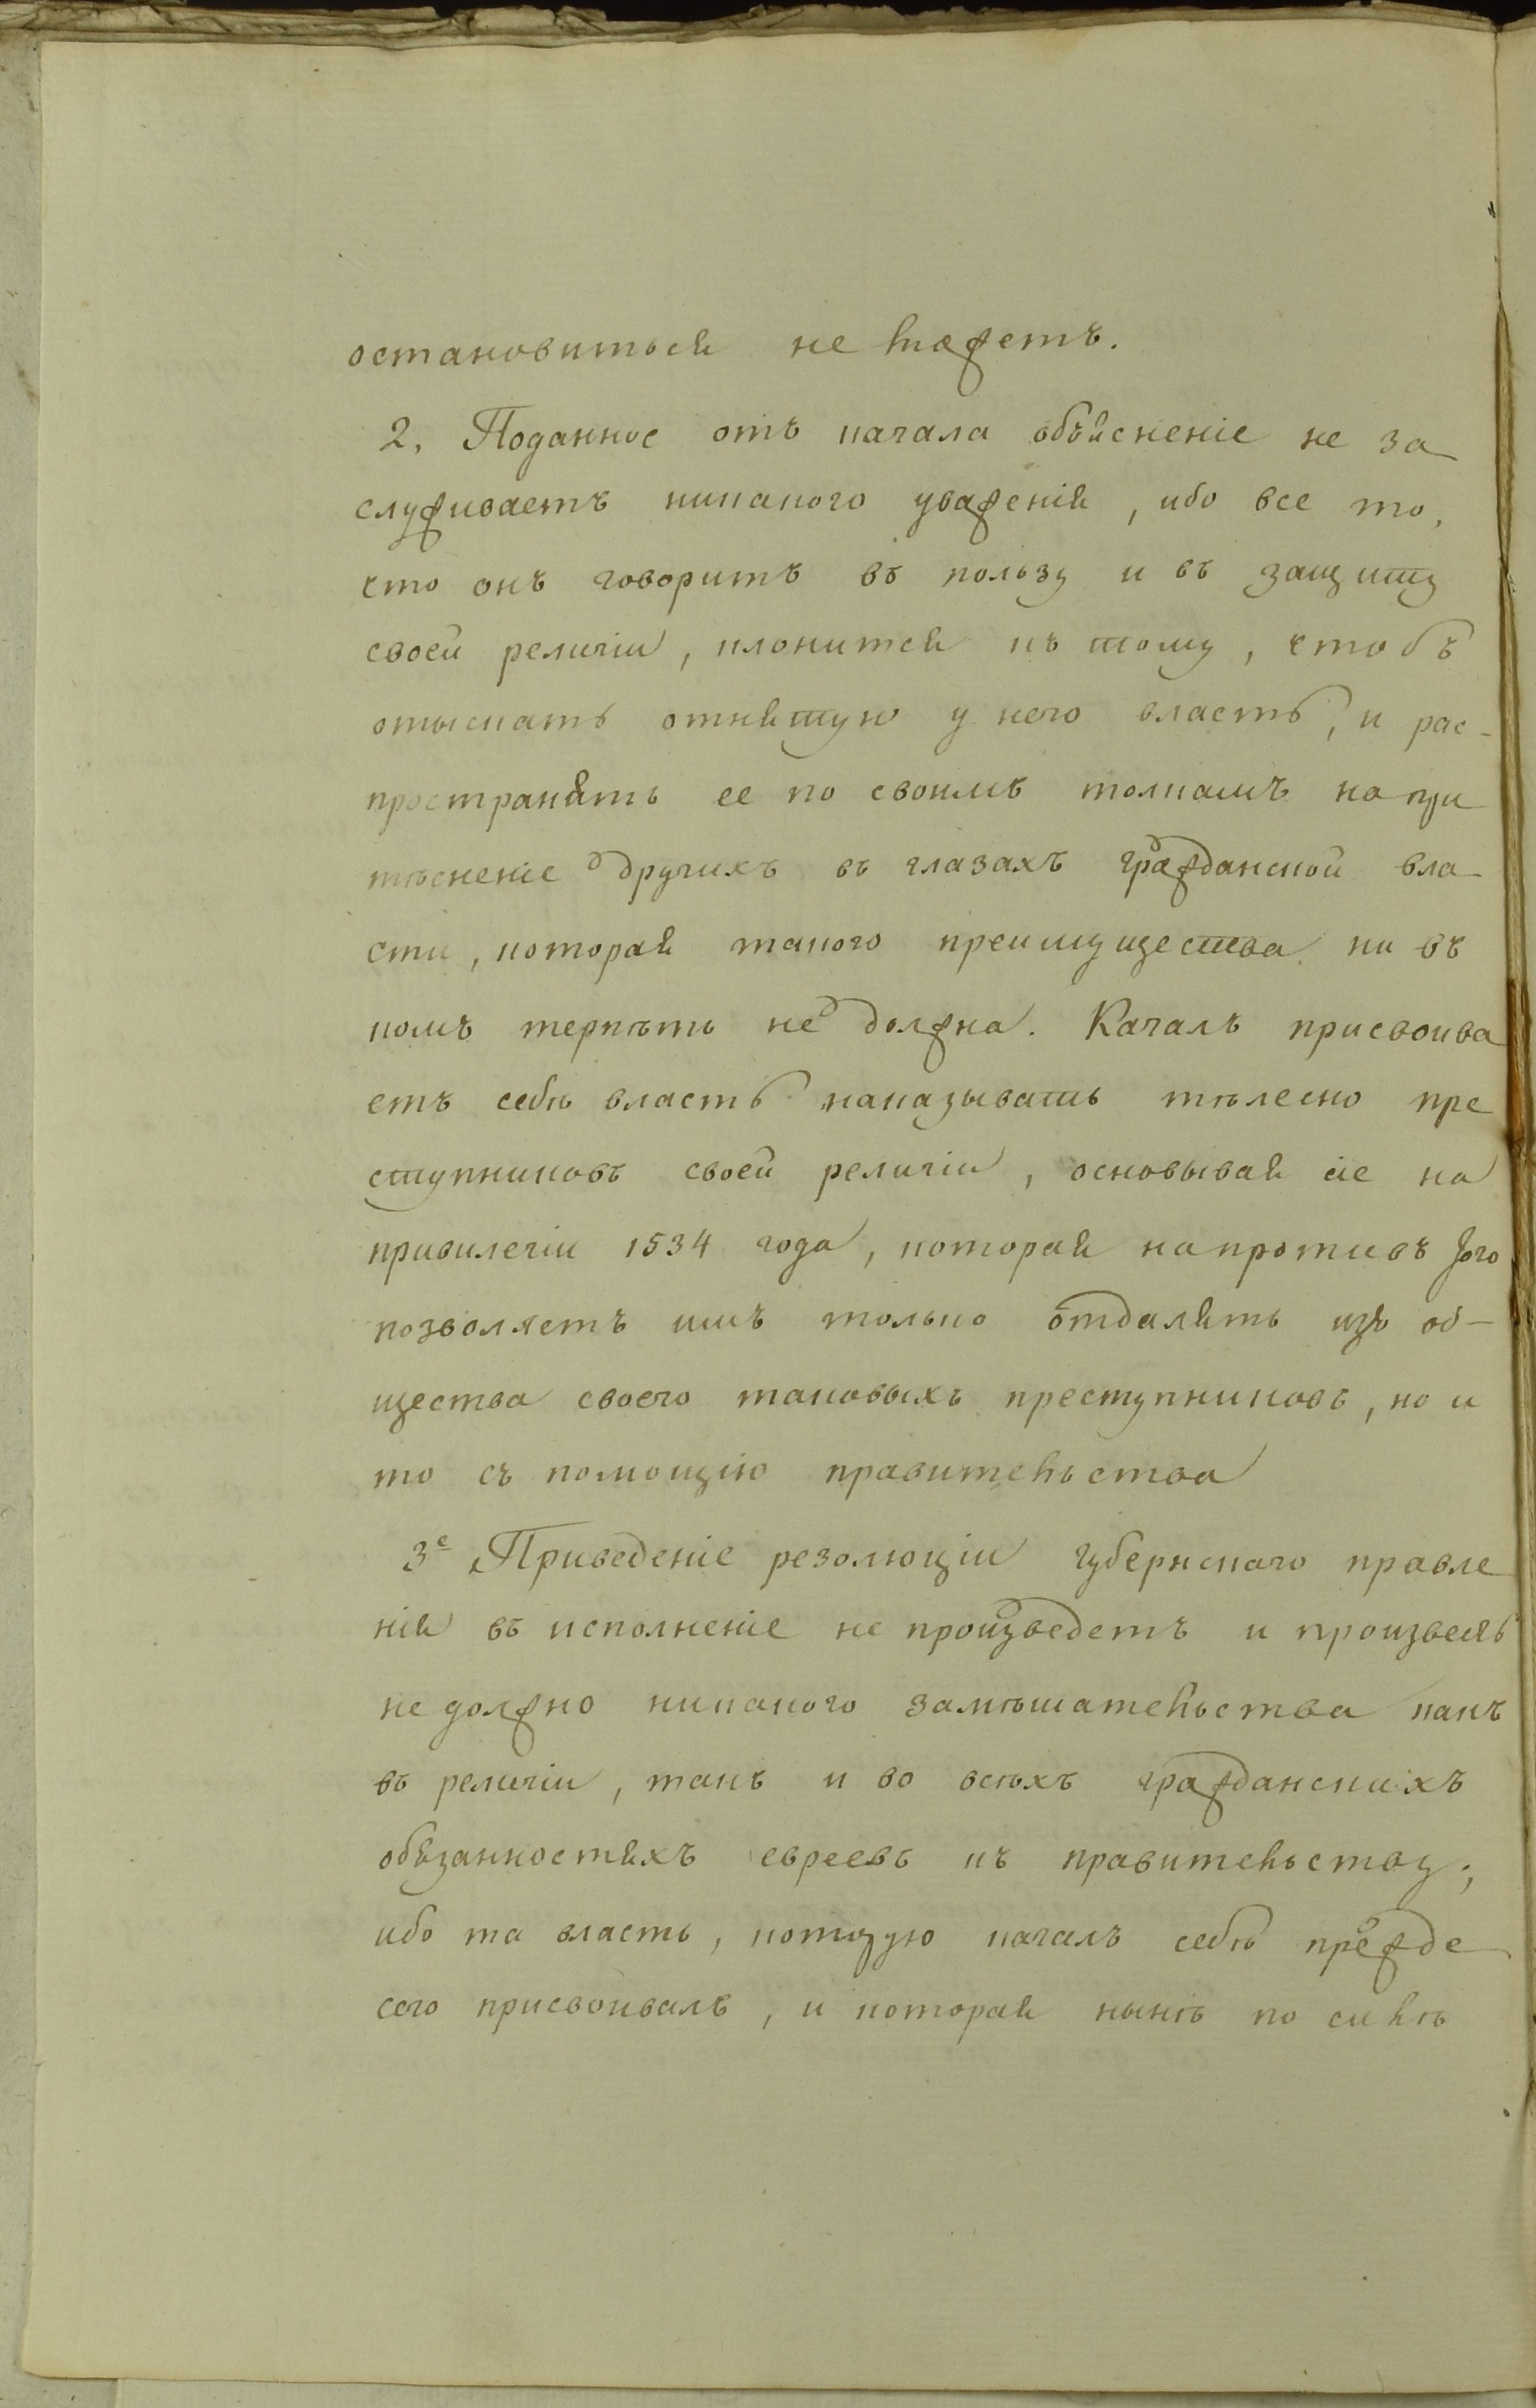 остановиться не можетъ.
2. Поданное отъ кагала объясненіе не за
служиваетъ никакого уваженія, ибо все то,
что онъ говоритъ въ пользу и въ защиту
своей религіи, клонится къ тому, чтобъ
отыскать отнятую у него власть, и рас-
пространять ее по своимъ толкамъ на при
тѣсненіе другихъ въ глазахъ гражданской вла
сти, которая такого преимущества ни въ
комъ терпѣть не должна. Кагалъ присвоива
етъ себѣ власть наказывать тѣлесно пре
ступниковъ своей религіи, основывая сіе на
привилегіи 1534 года, которая напротивъ того
позволяетъ имъ только отдалять изъ об-
щества своего таковыхъ преступниковъ, но и
то съ помощію правительства
3е Приведеніе резолюціи губернскаго правле
нія въ исполненіе не произведетъ и произвесть
не должно никакого замѣшательства какъ
въ религіи, такъ и во всѣхъ гражданскихъ
обязанностяхъ евреевъ къ правительству;
ибо та власть, которую кагалъ себѣ прежде
сего присвоивалъ, и которая нынѣ по силѣ